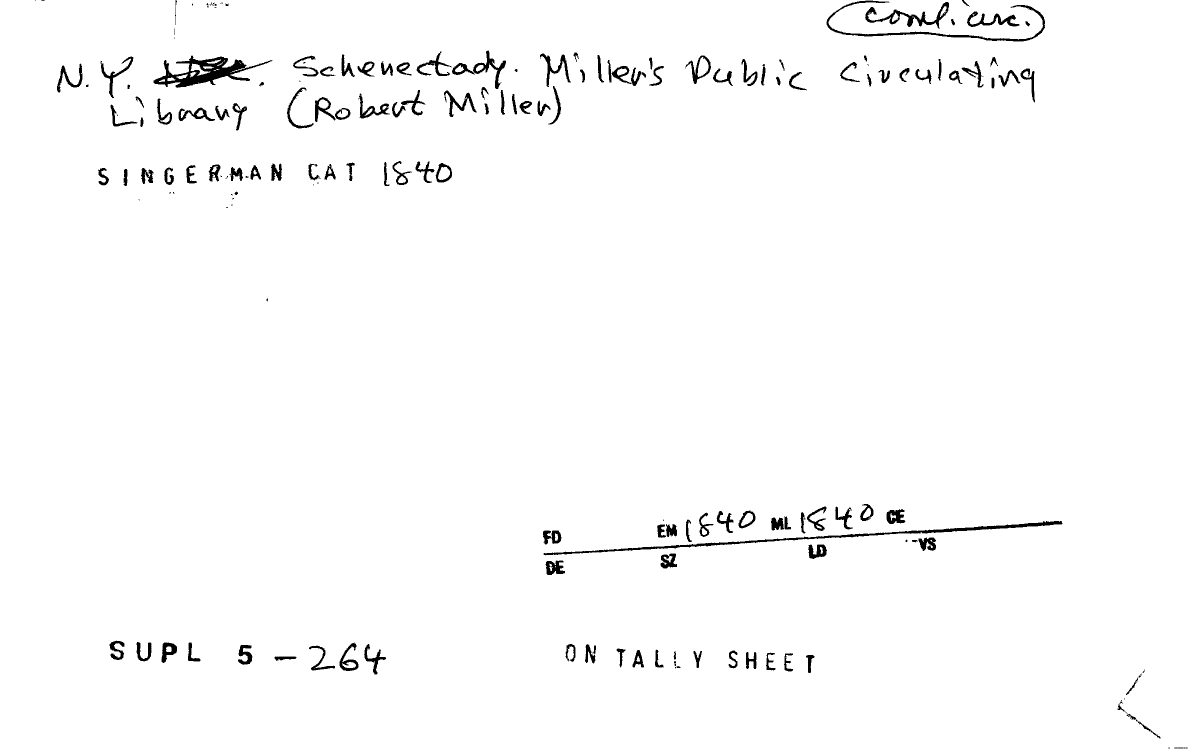 coml. circ.
N.Y. Schenectady. Miller's Public Circulating
Library (Robert Miller)
SINGERMAN CAT 1840
FD EM 1840 ML 1840 CE
DE SZ LD VS
SUPL 5 - 264 ON TALLY SHEET